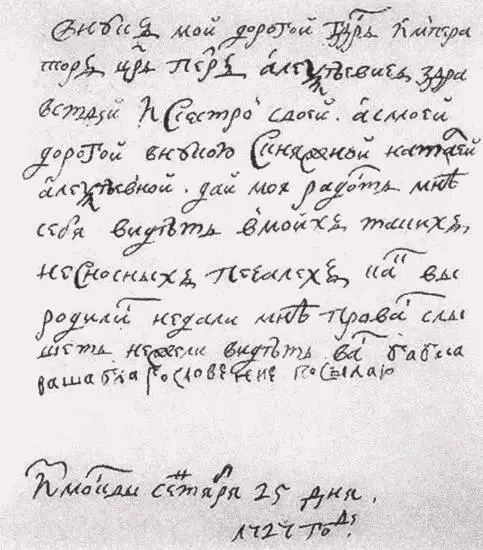 Внукъ мой дорогой Гдрь Импера
торъ црь Петръ алеѯѣевичъ здра
вствѹй И Ссестро своей. а смоей
дорогой внукою Скняжной натаѣй
алеѯѣевной. дай моя радость мнѣ
себя видѣть вмойхъ такихъ,
неСносныхъ печалехъ, как вы
родилис недали мнѣ Провас слы
шеть нежели видѣть вас бабка
ваша благословение посылаю
Измосквы сентября 25 дня,
1727 году.